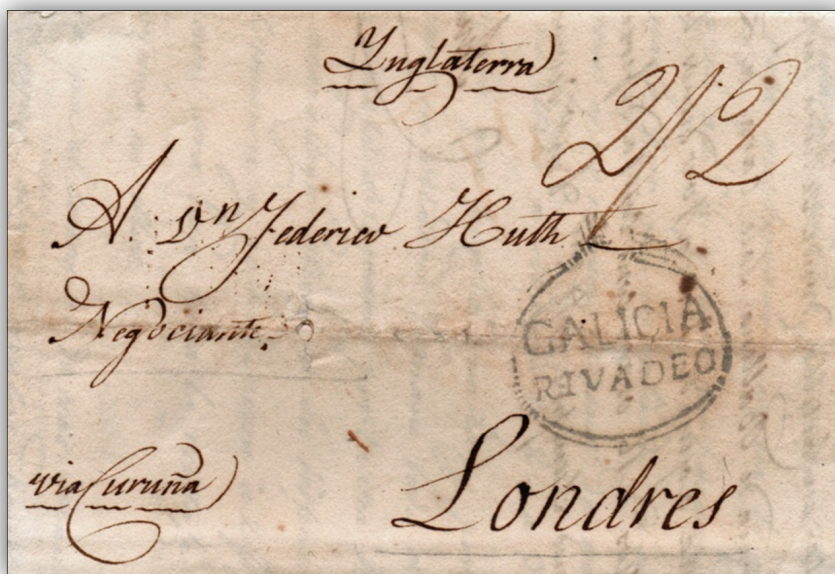 Ynglaterra
2/2
A Dn Federico Huth
Negociante.
GALICIA
RIVADEO
via Curuña
Londres